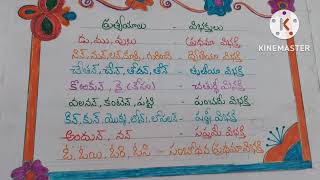 ప్రత్యయాలు - విభక్తులు
డు, ము, వు, లు - ప్రథమా విభక్తి
నిన్, నున్, లన్, కూర్చి, గురించి - ద్వితీయా విభక్తి
చేతన్, చేన్, తోడన్, తోన్ - తృతీయా విభక్తి
కొఱకున్, కై (కోసం) - చతుర్థీ విభక్తి
వలనన్, కంటెన్, పట్టి - పంచమీ విభక్తి
కిన్, కున్, యొక్క, లోన్, లోపలన్ - షష్ఠీ విభక్తి
అందున్, నన్ - సప్తమీ విభక్తి
ఓ, ఓయి, ఓరి, ఓసి - సంబోధన ప్రథమా విభక్తి
KINEMASTER